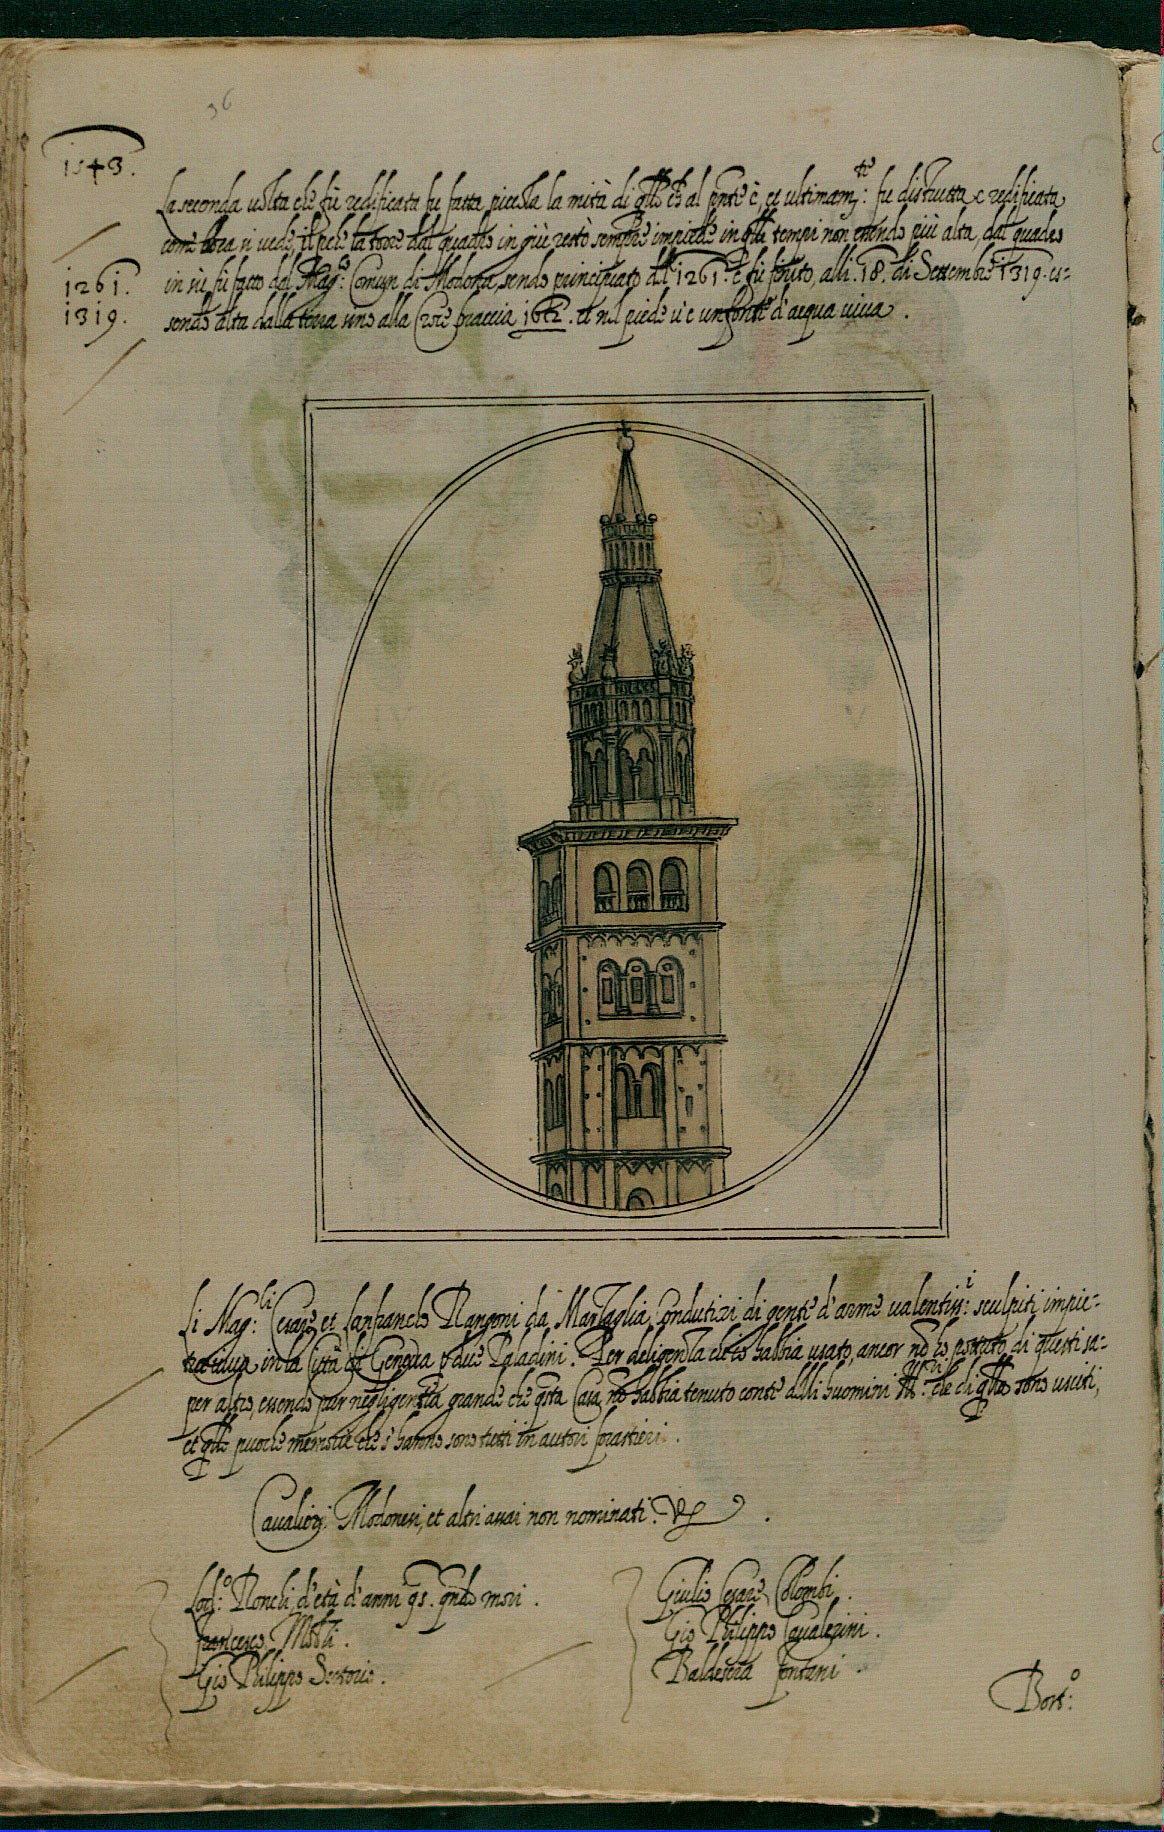 36
1543.
La seconda volta che fù redificata fu fatta picola la mità di q̃llo ch'al pñte è, et ultimam:te fu distrutta e redificata
come hora si vede, il perche la torre dal quadro in giù restò sempre impiede in q̃lli tempi non essendo più alta, dal quadro
1261.
in sù fù fatto dal Mag:co Comun di Modona, sendo principiato dil 1261. e fù finito, alli .18. di Settembre 1319. es-
1319.
sendo alta dalla terra sino alla Croce braccia . et nel piede vi è un fonte d'acqua viva .
Li Mag:li Cesare et Lanfranco Rangoni da Marzaglia Condutieri di gente d'arme valentiss:i sculpiti in pie-
tra viva in la Città di Genova due Paladini. Per deligenza ch'io habbia usato, ancor nõ ho potuto di questi sa-
per altro, essendo pur negligentia grande che q̃sta Casa nõ habbia tenuto conto delli huomini Ill:ri che di q̃lla sono usciti,
et q̃lle puoche memorie che s'hanno sono tutti in autori forastieri .
Cavalieri Modonesi, et altri assai non nominati.
Lod:o Ronchi, d'età d'anni 95. qñdo morì .
Francesco Molli .
Gio Philippo Sertorio .
Giulio Cesare Colombi .
Gio Philippo Cavalerini .
Baldesera Fontani .
Bort:o